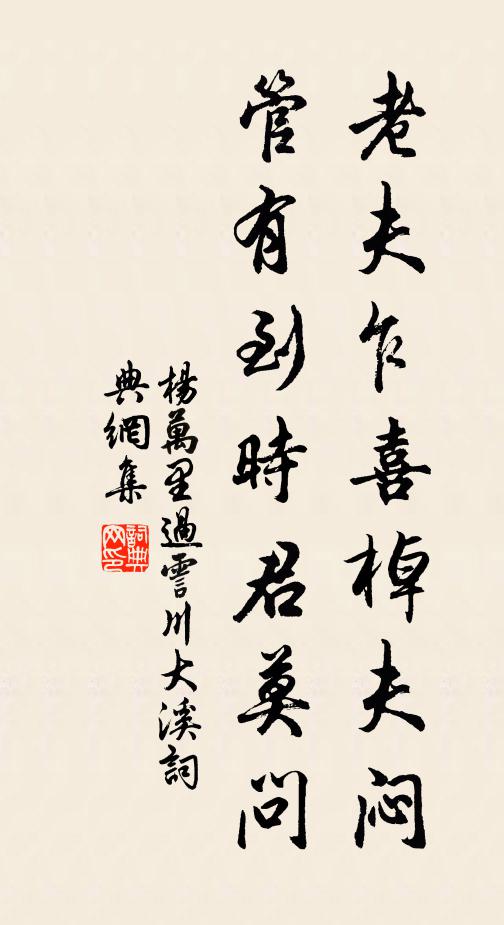 老夫乍喜棹夫闷
管有到時君莫問
楊萬里過霅川大溪詞
典網集
詞典網印